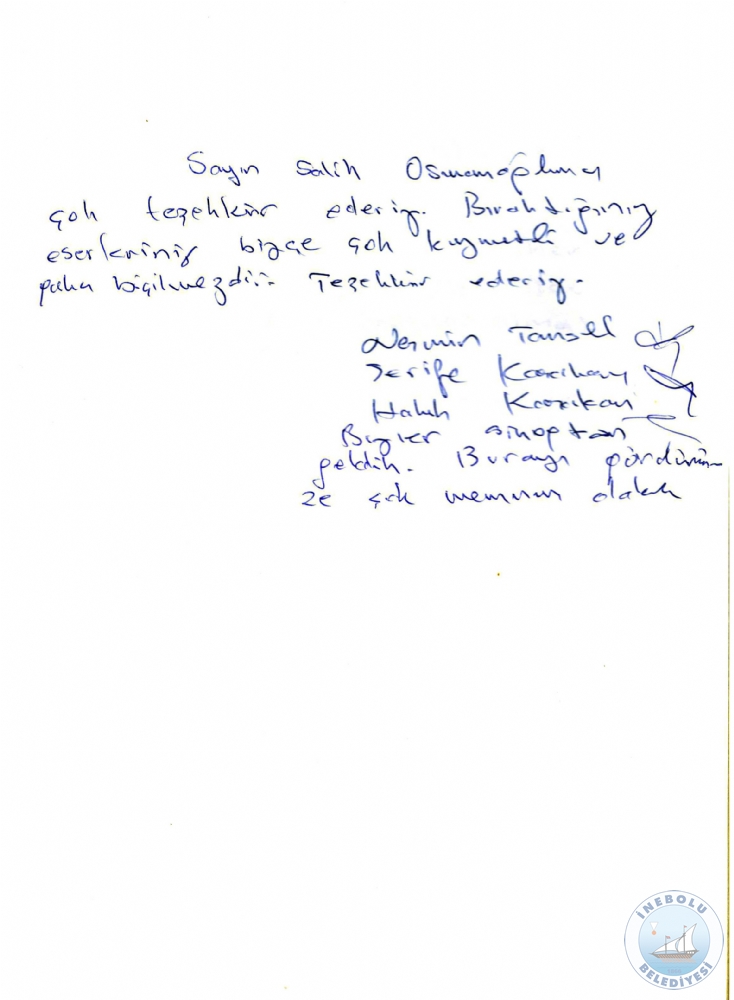 Sayın Salih Osmanoğluna
çok teşekkür ederiz. Bıraktığınız
eserleriniz bizce çok kıymetli ve
paha biçilmezdir. Teşekkür ederiz.
Nermin Tansel
Şerife Kazıkan
Haluk Kazıkan
Bizler sinoptan
geldik. Burayı gördüğümü
ze çok memnun olduk
İNEBOLU
BELEDİYESİ